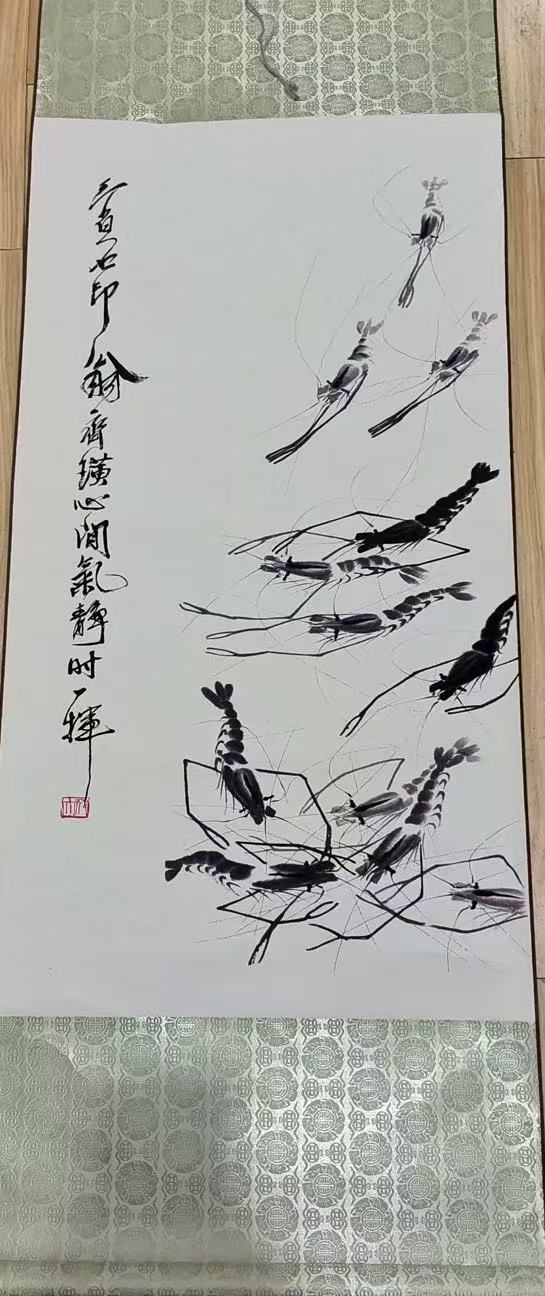 三百石印翁齊璜心間氣靜时一揮